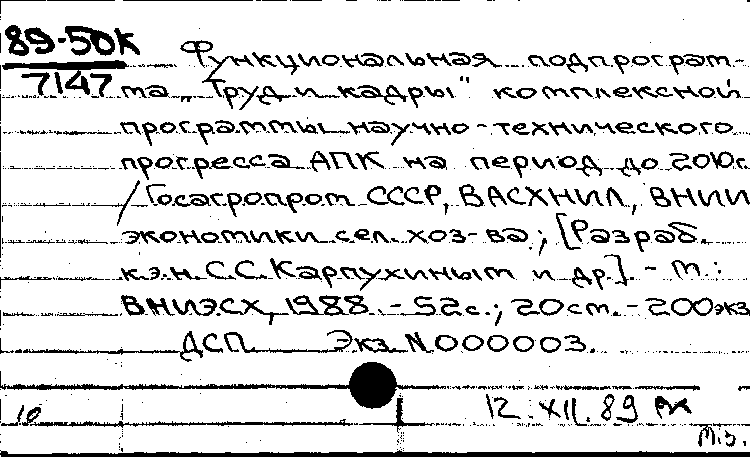 89-50К
7147
Функциональная подпрограм-
ма „Труд и кадры" комплексной
программы научно-технического
прогресса АПК на период до 2010г.
/Госагропром СССР, ВАСХНИЛ, ВНИИ
экономики сел. хоз-ва; [Разраб.
к.э.н. С.С. Карпухиным и др.]. - М.:
ВНИЭСХ, 1988. - 52с.; 20см. - 200экз
ДСП Экз N 000003.
10 12.XII.89
М.З.